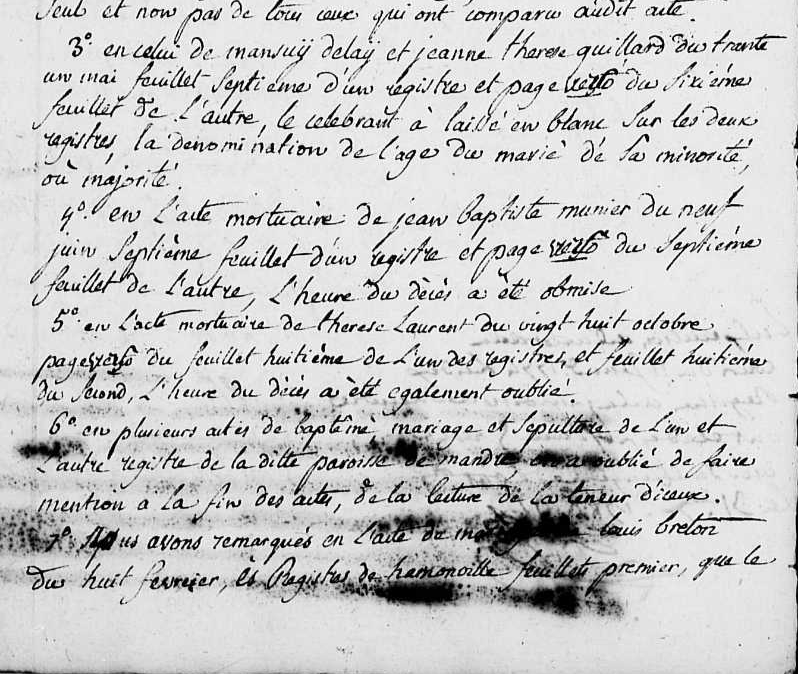 seul et non pas de tous ceux qui ont comparu audit acte.
3.° en celui de mansuÿ delaÿ et jeanne therese guillard du trente
un mai feuillet septieme d'un registre et page verso du sixiéme
feuillet de L'autre, le celebrant à laissé en blanc sur les deux
registres, la denomination de l'age du marié de sa minorité,
où majorité.
4.° en L'acte mortuaire de jean baptiste munier du neuf
juin septième feuillet d'un registre et page verso du septiéme
feuillet de L'autre, L'heure du décès a èté obmise
5.° en L'acte mortuaire de therese Laurent du vingt huit octobre
page verso du feuillet huitiéme de L'un des registres, et feuillet huitiéme
du second, L'heure du décès a èté egalement oublié.
6.° en plusieurs actes de baptême, mariage et sepulture de L'un et
L'autre registre de la ditte paroisse de mandre, on a oublié de faire
mention a la fin des actes, de la lecture de la teneur d'iceux.
7.° Nous avons remarqués en L'acte de louis breton
du huit fevrier, es Registres de hamonville feuillets premier, que le